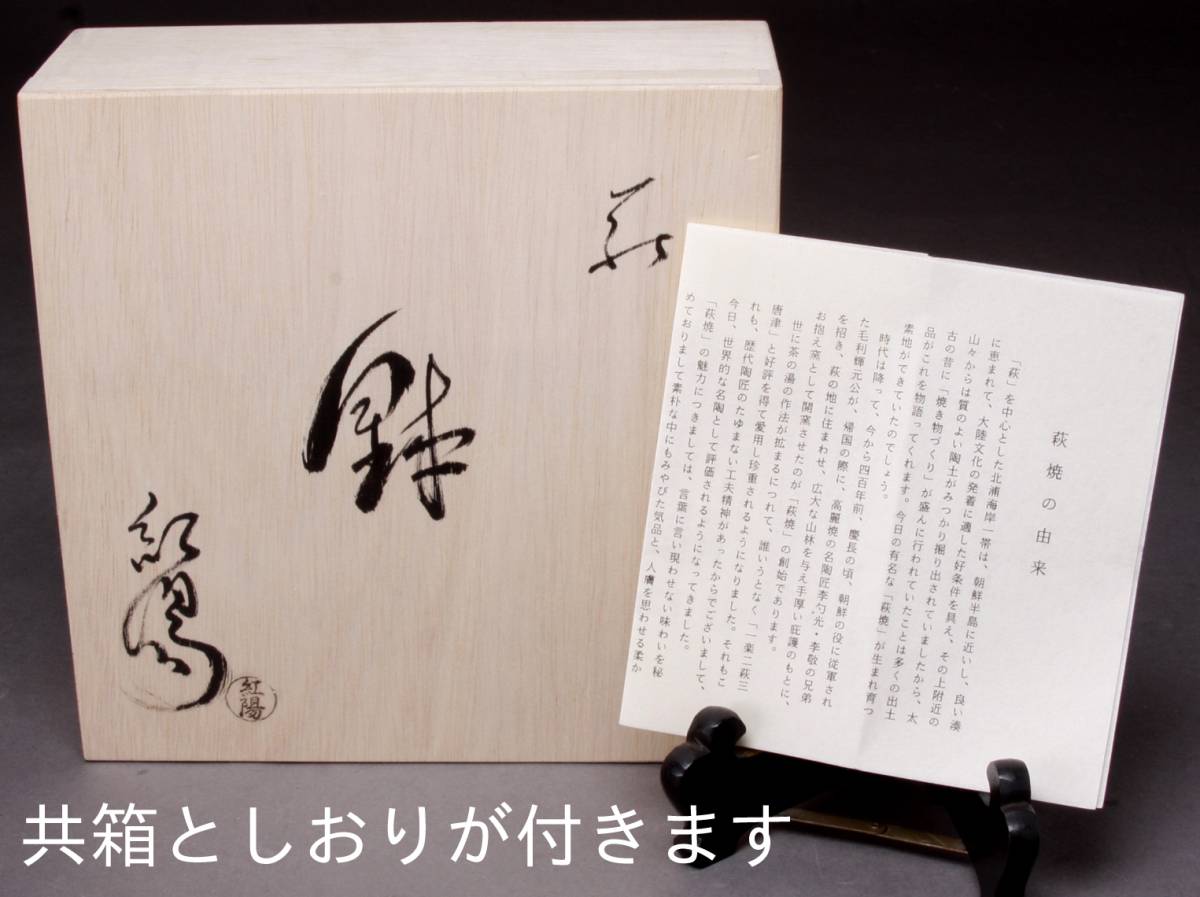 萩
鉢
紅陽
紅陽
萩焼の由来
「萩」を中心とした北浦海岸一帯は、朝鮮半島に近いし、良い湊
に恵まれて、大陸文化の発着に適した好条件を具え、その上附近の
山々からは質のよい陶土がみつかり掘り出されていましたから、太
古の昔に「焼き物づくり」が盛んに行われていたことは多くの出土
品がこれを物語ってくれます。今日の有名な「萩焼」が生まれ育つ
素地ができていたのでしょう。
時代は降って、今から四百年前、慶長の頃、朝鮮の役に従軍され
た毛利輝元公が、帰国の際に、高麗焼の名陶匠李勺光・李敬の兄弟
を招き、萩の地に住まわせ、広大な山林を与え手厚い庇護のもとに、
お抱え窯として開窯させたのが「萩焼」の創始であります。
世に茶の湯の作法が拡まるにつれて、誰いうとなく「一楽二萩三
唐津」と好評を得て愛用し珍重されるようになりました。それもこ
れも、歴代陶匠のたゆまない工夫精神があったからでございまして、
今日、世界的な名陶として評価されるようになってきました。
「萩焼」の魅力につきましては、言葉に言い現わせない味わいを秘
めておりまして素朴な中にもみやびた気品と、人膚を思わせる柔か
共箱としおりが付きます